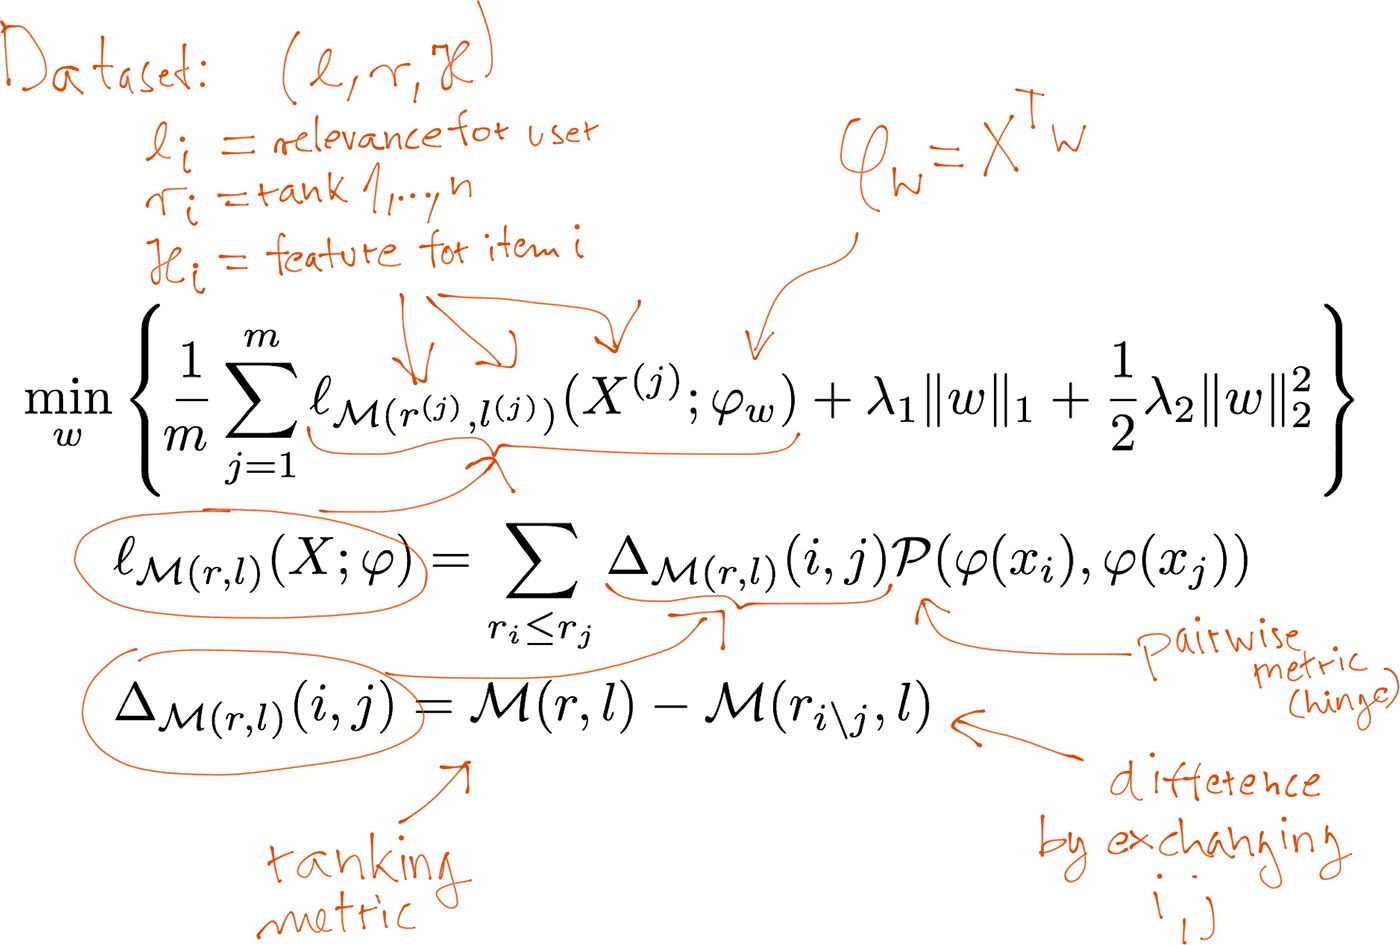 Dataset: (l, r, x)
l_i = relevance for user
r_i = rank 1,...,n
x_i = feature for item i
φ_w = X^T w
min_w { \frac{1}{m} \sum_{j=1}^{m} ℓ_{ℳ(r^{(j)}, l^{(j)})}(X^{(j)}; φ_w) + λ_1‖w‖_1 + \frac{1}{2} λ_2‖w‖_2^2 }
ℓ_{ℳ(r,l)}(X; φ) = \sum_{r_i ≤ r_j} Δ_{ℳ(r,l)}(i, j) 𝒫(φ(x_i), φ(x_j))
pairwise
metric
(hinge)
Δ_{ℳ(r,l)}(i, j) = ℳ(r, l) − ℳ(r_{i\j}, l)
ranking
metric
difference
by exchanging
i, j